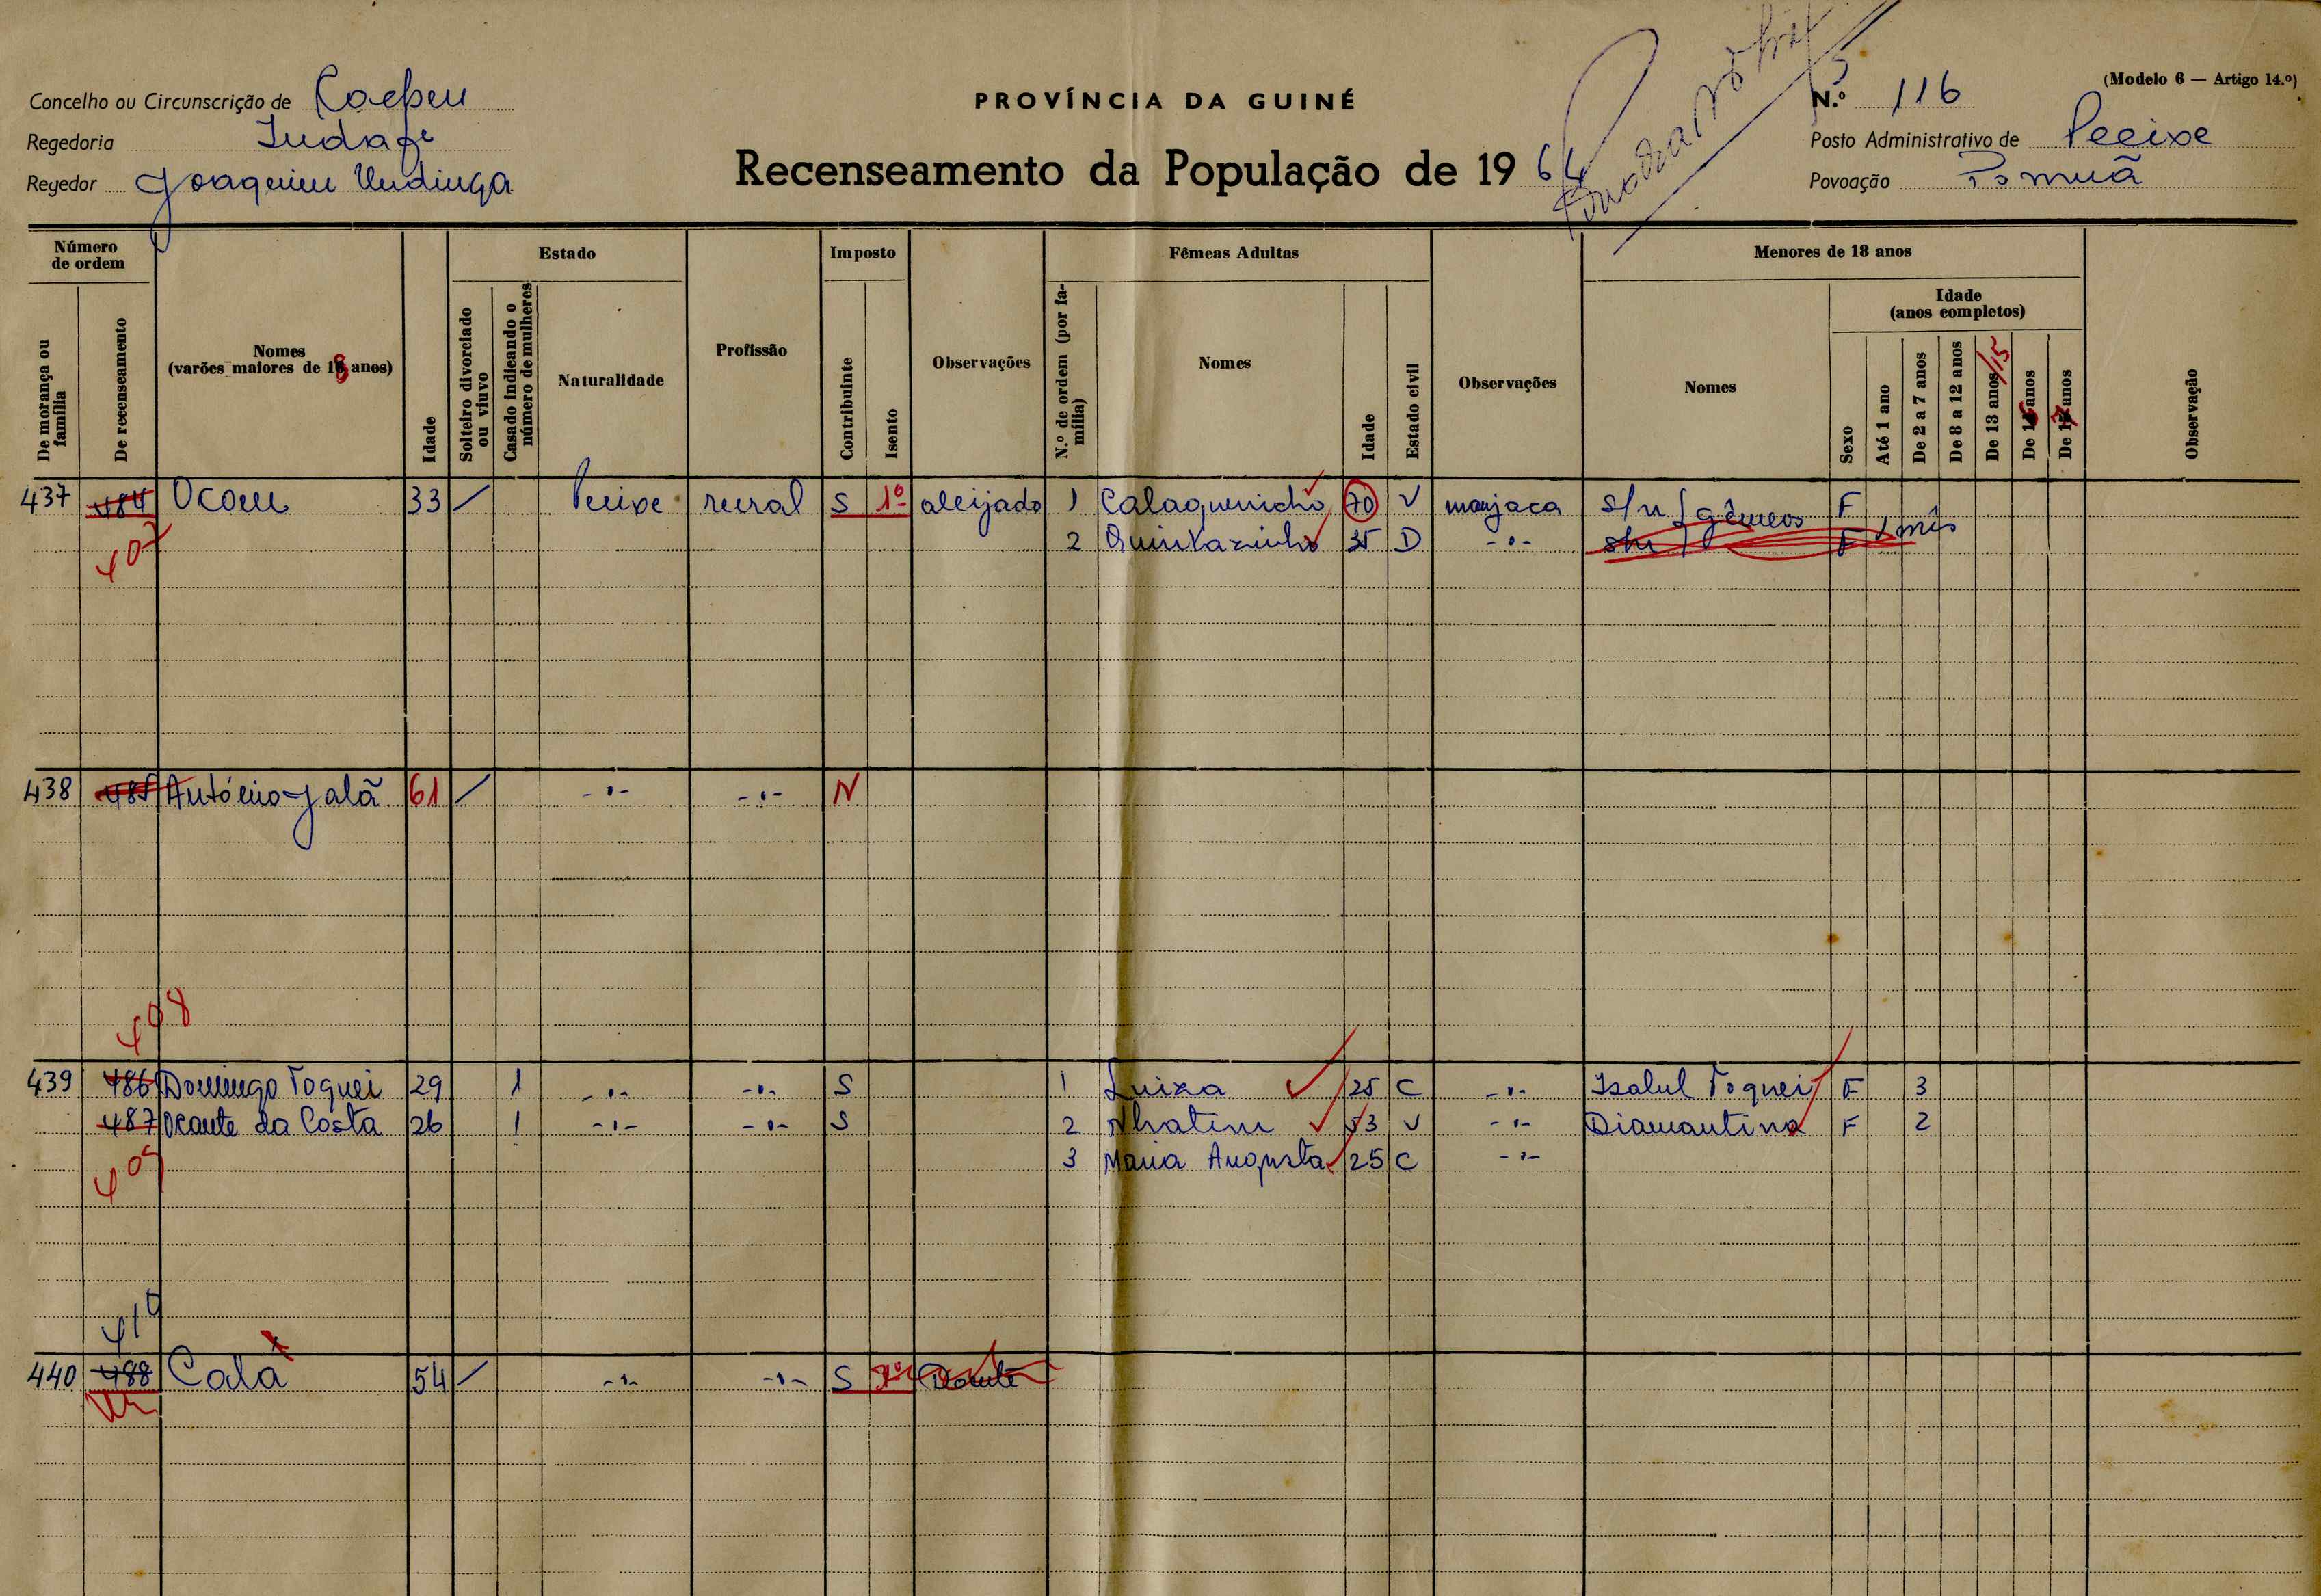 (Modelo 6 — Artigo 14.º)
PROVÍNCIA DA GUINÉ
Recenseamento da População de 1964
Concelho ou Circunscrição de
Regedoria
Regedor Joaquim
N.º 116
Posto Administrativo de Pecixe
Povoação
Número de ordem
De morança ou família
De recenseamento
Nomes
(varões maiores de 18 anos)
Idade
Estado
Solteiro divorciado ou viuvo
Casado indicando o número de mulheres
Naturalidade
Profissão
Imposto
Contribuinte
Isento
Observações
Fêmeas Adultas
N.º de ordem (por família)
Nomes
Idade
Estado civil
Observações
Menores de 18 anos
Nomes
Idade
(anos completos)
Sexo
Até 1 ano
De 2 a 7 anos
De 8 a 12 anos
De 13 anos/15
De anos
De anos
Observação
437 484 Ocom 33 / Pecixe rural S 1º aleijado 1 70 V manjaca s/n gêmeos F
407 2 35 D -"- s/n F 1 mês
438 485 António Jalã 61 / -"- -"- N
408
439 486 Domingo Toquei 29 1 -"- -"- S 1 Luiza 25 C -"- Isabul Toquei F 3
487 Ocante da Costa 26 1 -"- -"- S 2 Nhatim 53 V -"- Diamantina F 2
409 3 Maria Augusta 25 C -"-
410
440 488 Cala 54 / -"- -"- S Doente